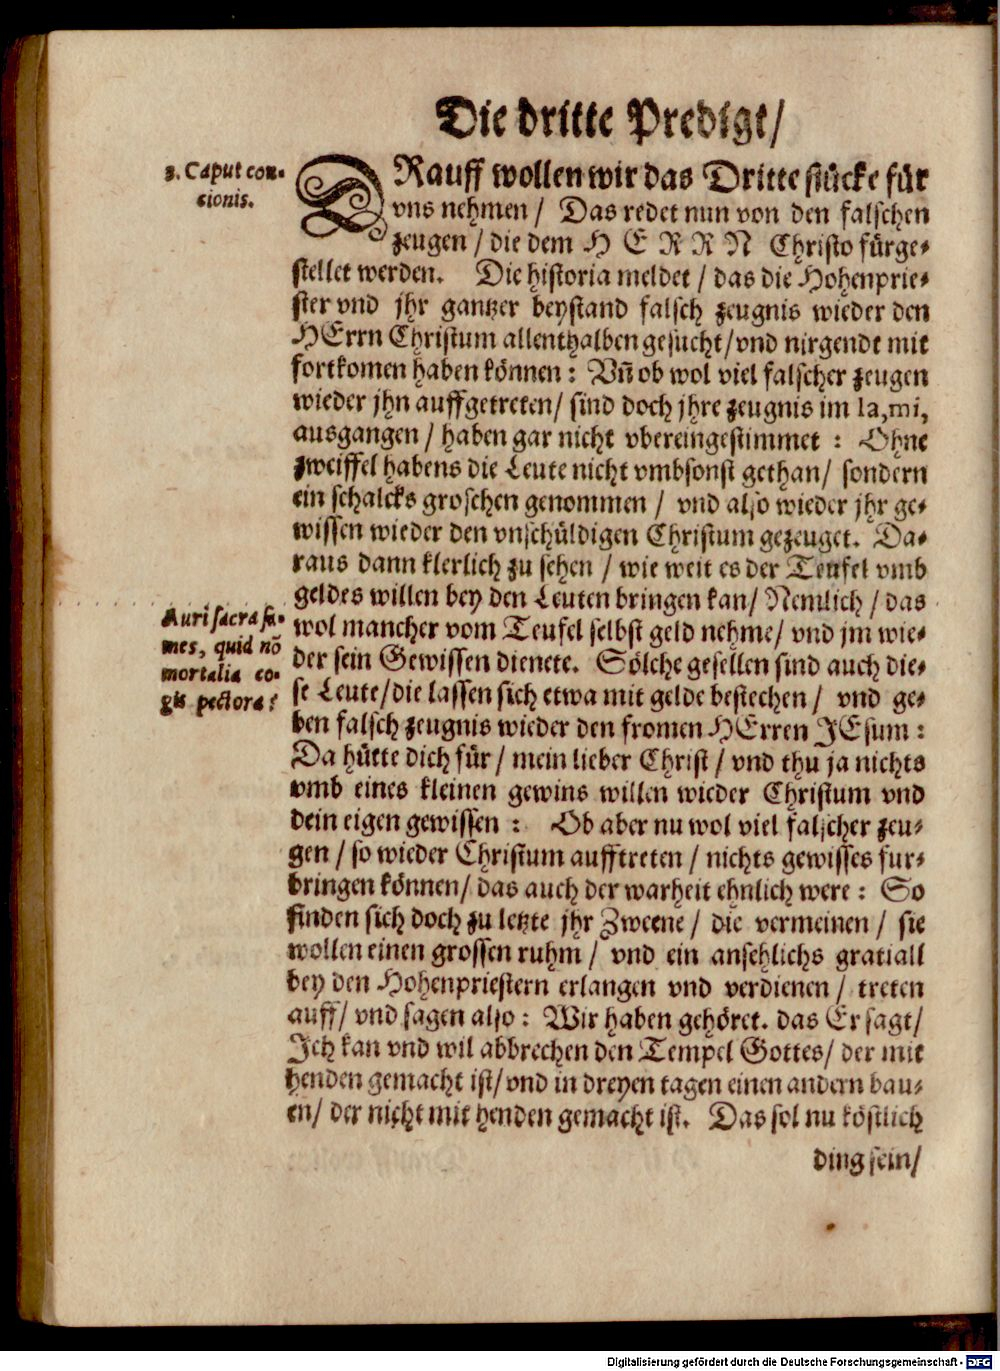 Die dritte Predigt/
3. Caput con-
cionis.
DRauff wollen wir das Dritte stücke für
vns nehmen / Das redet nun von den falschen
zeugen / die dem HERRN Christo fürge-
stellet werden. Die historia meldet / das die Hohenprie-
ster vnd jhr gantzer beystand falsch zeugnis wieder den
HErrn Christum allenthalben gesucht/vnd nirgendt mit
fortkomen haben können : Vñ ob wol viel falscher zeugen
wieder jhn auffgetreten/ sind doch jhre zeugnis im la,mi,
ausgangen / haben gar nicht vbereingestimmet : Ohne
zweiffel habens die Leute nicht vmbsonst gethan/ sondern
ein schalcks groschen genommen / vnd also wieder jhr ge-
wissen wieder den vnschüldigen Christum gezeuget. Da-
raus dann klerlich zu sehen / wie weit es der Teufel vmb
geldes willen bey den Leuten bringen kan/ Nemlich / das
wol mancher vom Teufel selbst geld nehme/ vnd jm wie-
der sein Gewissen dienete. Sölche gesellen sind auch die-
se Leute/die lassen sich etwa mit gelde bestechen / vnd ge-
ben falsch zeugnis wieder den fromen HErren JEsum :
Da hütte dich für / mein lieber Christ / vnd thu ja nichts
vmb eines kleinen gewins willen wieder Christum vnd
dein eigen gewissen : Ob aber nu wol viel falscher zeu-
gen / so wieder Christum aufftreten / nichts gewisses fur-
bringen können/ das auch der warheit ehnlich were : So
finden sich doch zu letzte jhr Zweene / die vermeinen / sie
wollen einen grossen ruhm / vnd ein ansehlichs gratiall
bey den Hohenpriestern erlangen vnd verdienen / treten
auff/ vnd sagen also : Wir haben gehöret. das Er sagt/
Jch kan vnd wil abbrechen den Tempel Gottes/ der mit
henden gemacht ist/ vnd in dreyen tagen einen andern bau-
en/ der nicht mit henden gemacht ist. Das sol nu köstlich
ding sein/
Auri sacra fa-
mes, quid nõ
mortalia co-
gis pectora?
Digitalisierung gefördert durch die Deutsche Forschungsgemeinschaft - DFG